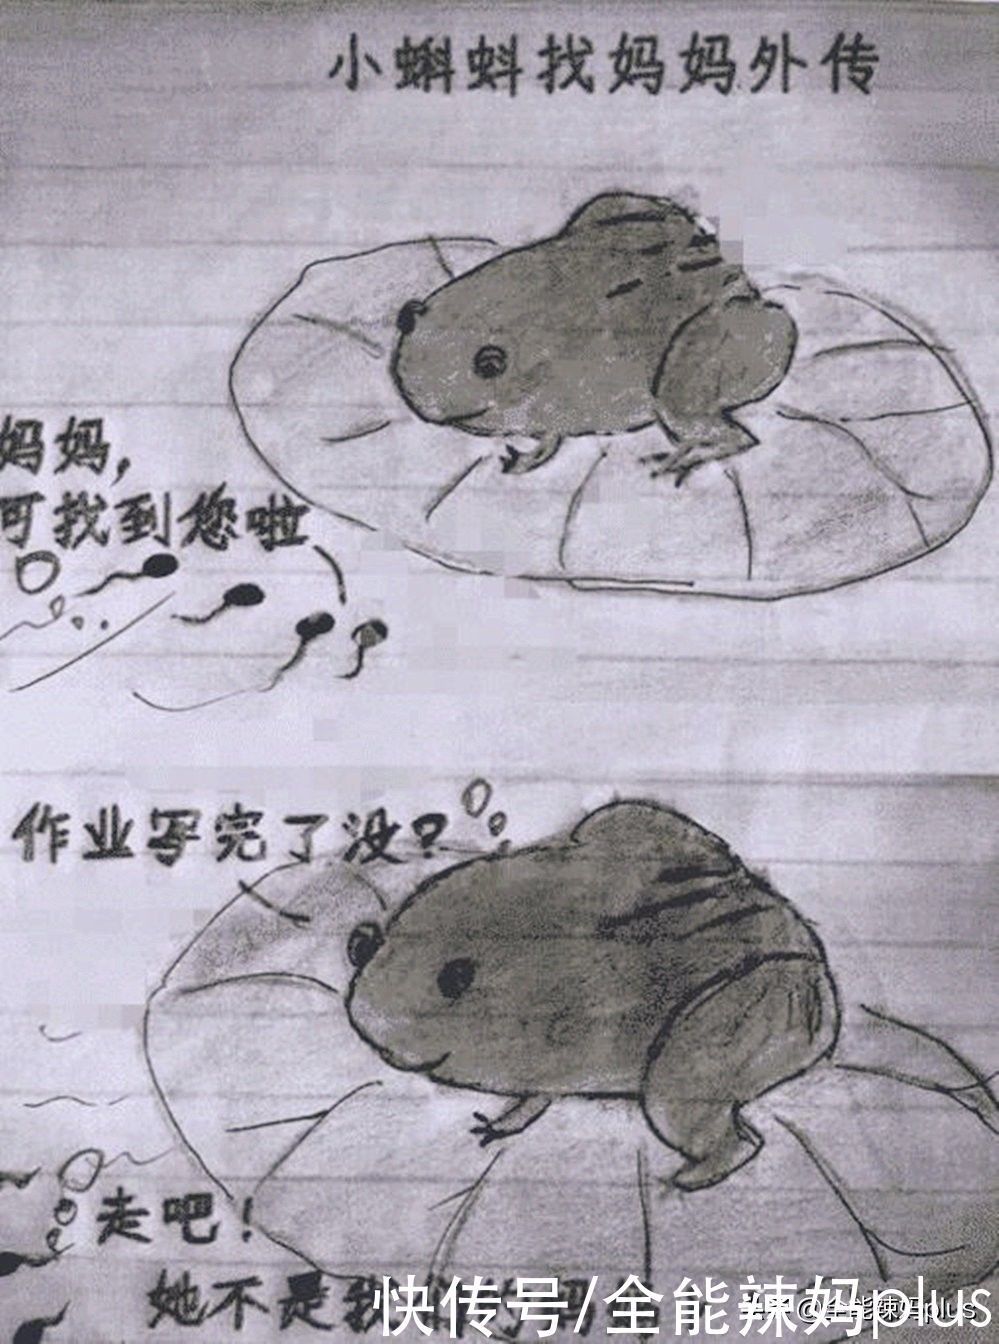 小蝌蚪找妈妈外传
妈妈,
可找到您啦
作业写完了没?
走吧!
她不是我
快传号/全能辣妈plus
@全能辣妈plus